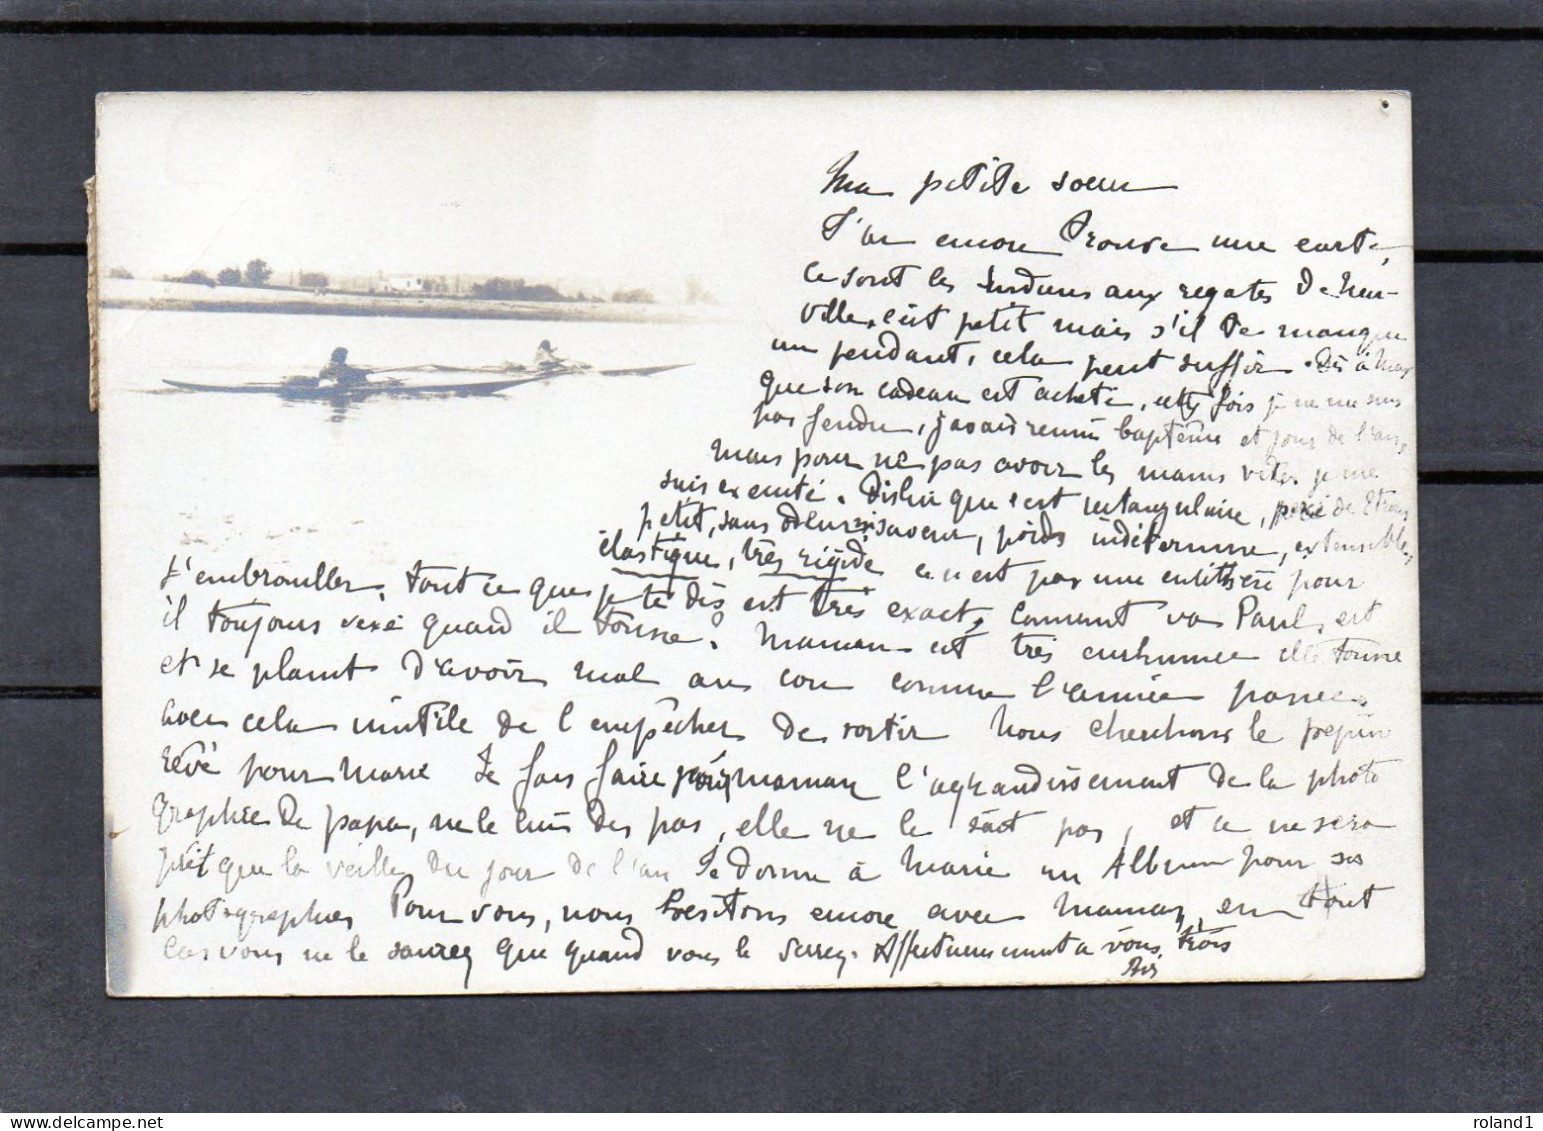 Ma petite soeur
J'ai encore trouvé une carte,
ce sont les Indiens aux regates de Neu-
ville, c'est petit mais s'il te manque
un pendant, cela peut suffir. Dis à Max
que son cadeau est acheté, cette fois je ne me suis
pas fendu, j'avais reuni baptême et jour de l'an,
mais pour ne pas avoir les mains vides je me
suis executé. Dis lui que c'est rectangulaire,
petit, sans odeur ni saveur, poids indéterminé, extensible,
élastique, très rigide ce n'est pas une pour
t'embrouiller, tout ce que je te dis est très exact, comment va Paul, est
il toujours vexé quand il tousse? Maman est très enrhumée elle tousse
et se plaint d'avoir mal au cou comme l'année passée
avec cela inutile de l'empêcher de sortir Nous cherchons le pepin
rêvé pour Marie Je fais faire pour maman l'agrandissement de la photo
graphie de papa, ne le lui dis pas, elle ne le sait pas, et ce ne sera
prêt que la veille du jour de l'an Je donne à Marie un Album pour ses
photographies Pour vous, nous hesitons encore avec Maman, en tout
cas vous ne le saurez que quand vous le serrez. Affectueusement a vous trois